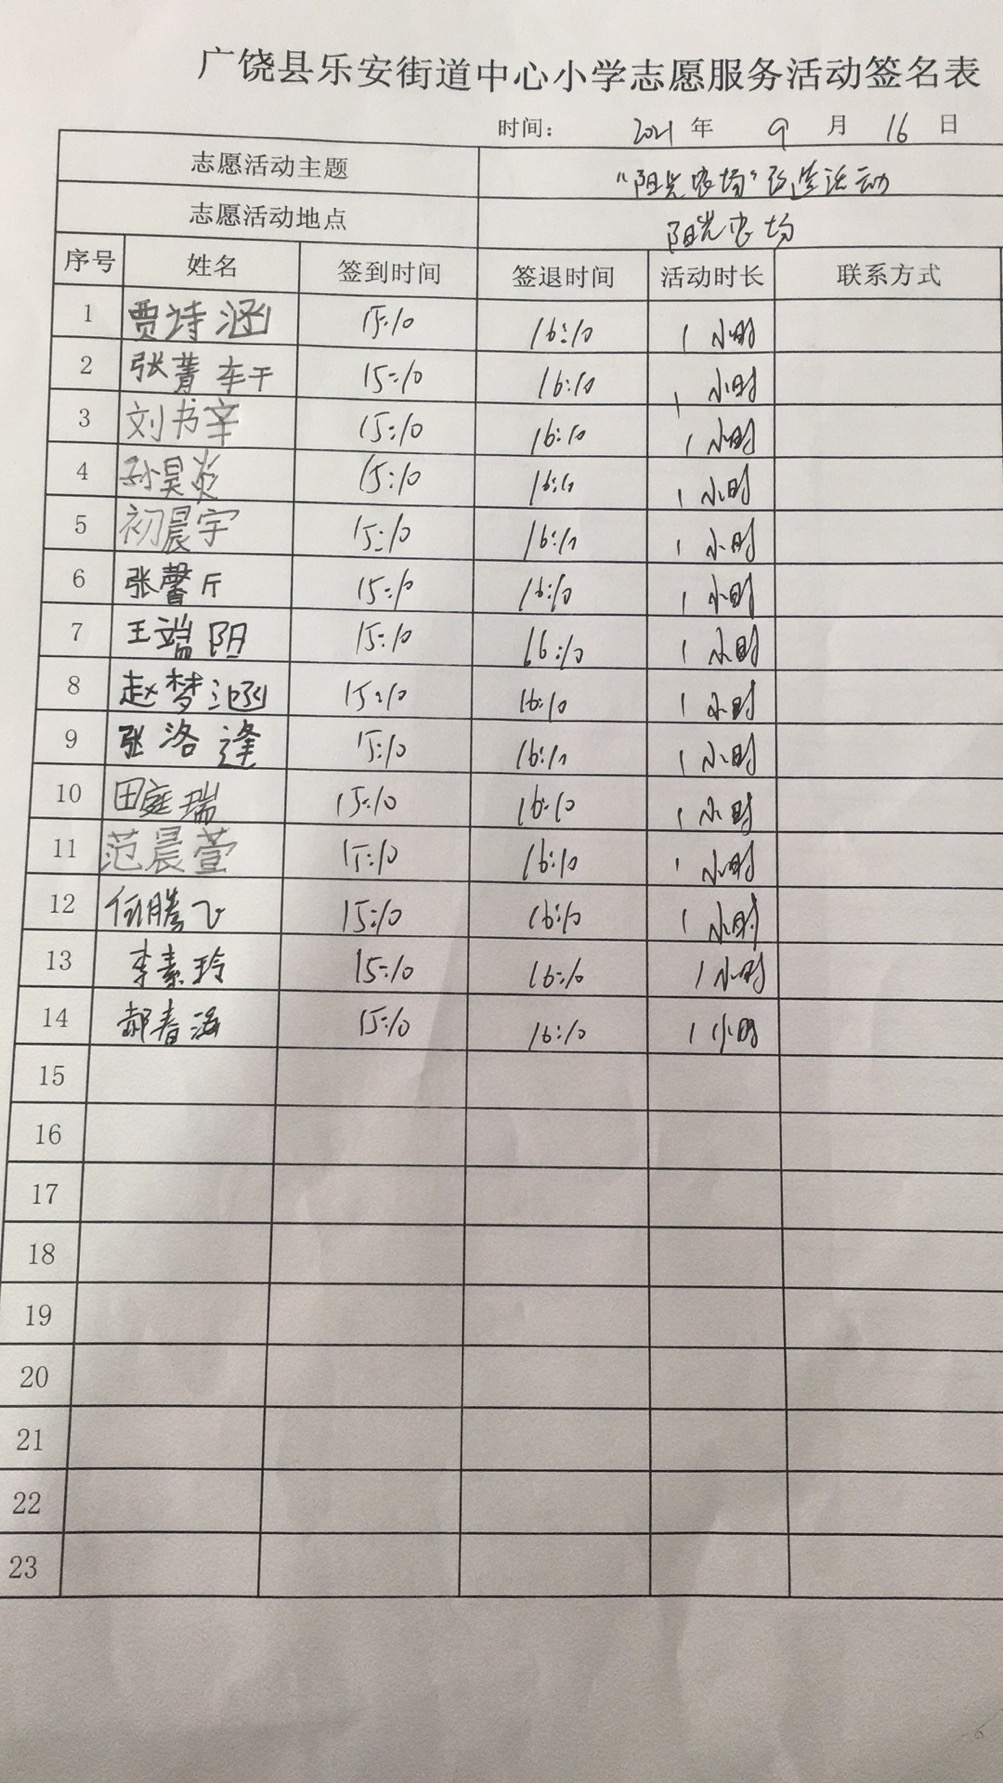 广饶县乐安街道中心小学志愿服务活动签名表
时间： 2021 年 9 月 16 日
志愿活动主题 "阳光农场"改造活动
志愿活动地点 阳光农场
序号 姓名 签到时间 签退时间 活动时长 联系方式
1 贾诗涵 15:10 16:10 1小时
2 张菁轩 15:10 16:10 1小时
3 刘书辛 15:10 16:10 1小时
4 孙昊炎 15:10 16:10 1小时
5 初晨宇 15:10 16:10 1小时
6 张馨斤 15:10 16:10 1小时
7 王端阳 15:10 16:10 1小时
8 赵梦涵 15:10 16:10 1小时
9 张洛逢 15:10 16:10 1小时
10 田庭瑞 15:10 16:10 1小时
11 范晨萱 15:10 16:10 1小时
12 腾飞 15:10 16:10 1小时
13 李素玲 15:10 16:10 1小时
14 郝春海 15:10 16:10 1小时
15
16
17
18
19
20
21
22
23